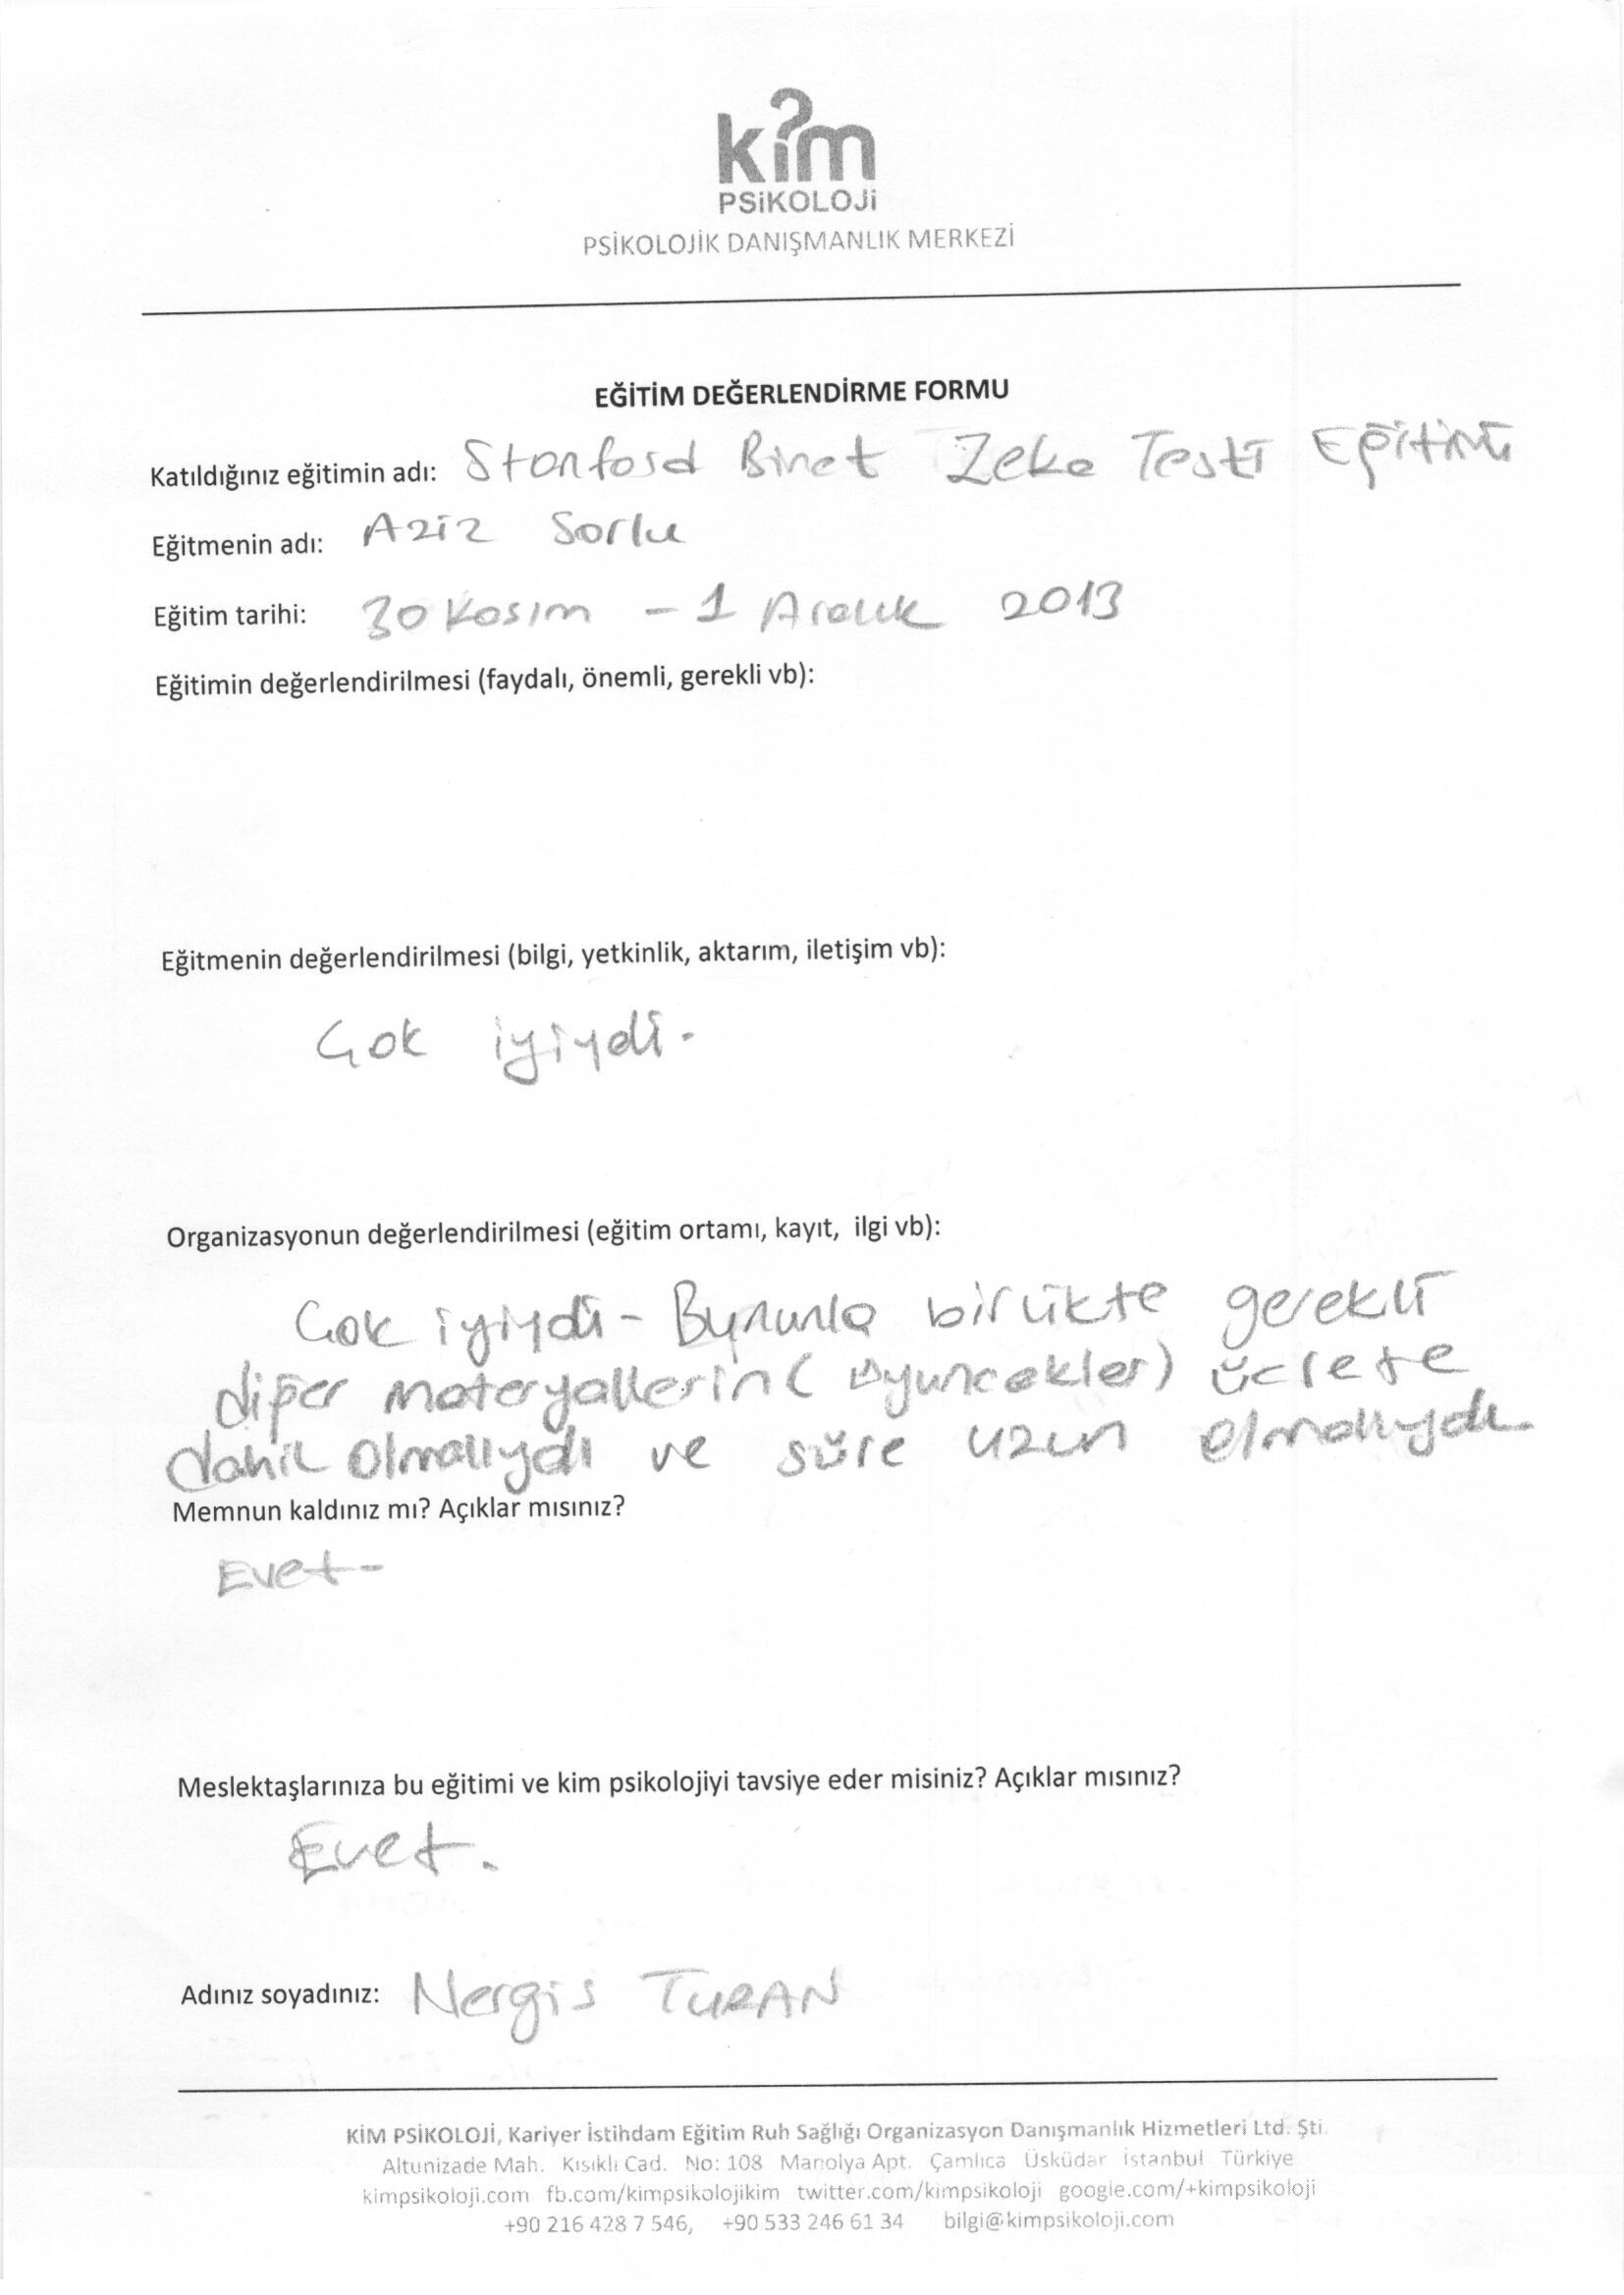 kim
PSiKOLOJi
PSİKOLOJİK DANIŞMANLIK MERKEZİ
EĞİTİM DEĞERLENDİRME FORMU
Katıldığınız eğitimin adı: Stanford Binet Zeka Testi Eğitimi
Eğitmenin adı: Aziz Sarlu
Eğitim tarihi: 30 Kasım - 1 Aralık 2013
Eğitimin değerlendirilmesi (faydalı, önemli, gerekli vb):
Eğitmenin değerlendirilmesi (bilgi, yetkinlik, aktarım, iletişim vb):
Çok iyiydi.
Organizasyonun değerlendirilmesi (eğitim ortamı, kayıt, ilgi vb):
Çok iyiydi - Bununla birlikte gerekli
diğer materyallerin (oyuncaklar) ücrete
dahil olmalıydı ve süre uzun olmalıydı.
Memnun kaldınız mı? Açıklar mısınız?
Evet -
Meslektaşlarınıza bu eğitimi ve kim psikolojiyi tavsiye eder misiniz? Açıklar mısınız?
Evet.
Adınız soyadınız: Nergis TURAN
KİM PSİKOLOJİ, Kariyer İstihdam Eğitim Ruh Sağlığı Organizasyon Danışmanlık Hizmetleri Ltd. Şti.
Altunizade Mah. Kısıklı Cad. No: 108 Manolya Apt. Çamlıca Üsküdar İstanbul Türkiye
kimpsikoloji.com fb.com/kimpsikolojikim twitter.com/kimpsikoloji google.com/+kimpsikoloji
+90 216 428 7 546, +90 533 246 61 34 bilgi@kimpsikoloji.com